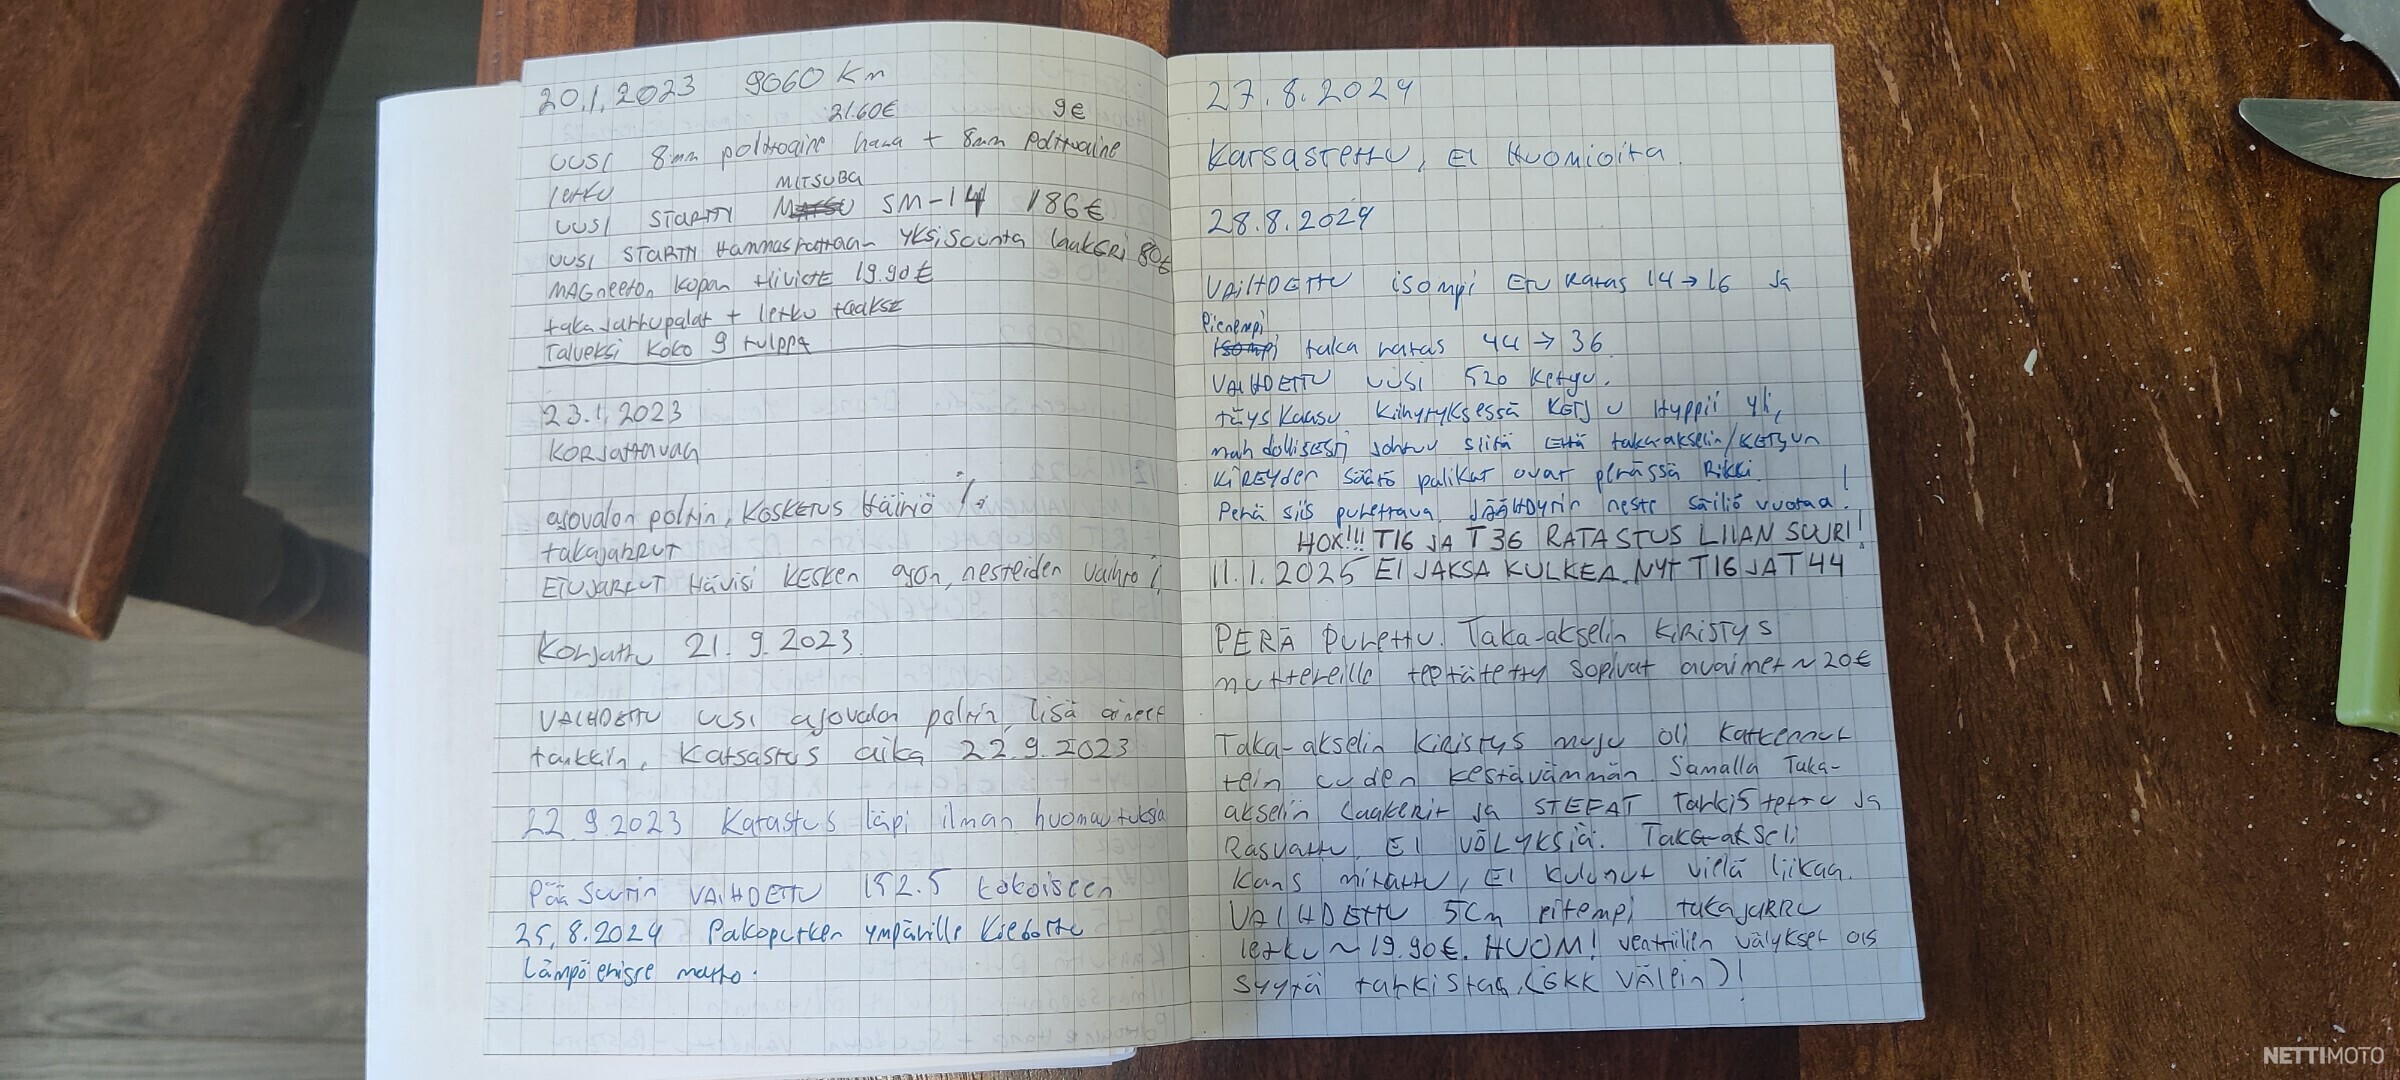 20.1.2023 9060 Km
21.60€ 9€
UUSI 8mm polttoaine hana + 8mm Polttoaine
letku
MITSUBA
UUSI STARTTI SM-14 186€
UUSI STARTTI Hammasrattaan yksisuunta laakeri 80€
MAGneeton kopan tiiviste 19.90€
takajarrupalat + letku taakse
Talveksi koko 9 tulppa
23.1.2023
KORjattavaa
ajovalon polttin, KOSKETUS Häiriö
takajarrut
ETUJARRUT Hävisi KESKEN ajon, nesteiden vaihto
Korjattu 21.9.2023
VAIHDETTU UUSI ajovalon polttin, lisä
tankkiin, Katsastus aika 22.9.2023
22.9.2023 Katastus läpi ilman huomautuksia
Pää Suutin VAIHDETTU 152.5 kokoiseen
25.8.2024 Pakoputken ympärille Kiedottu
lämpöeriste matto.
27.8.2024
Katsastettu, EI Huomioita.
28.8.2024
VAIHDETTU isompi Etu Ratas 14→16 Ja
Pienempi
isompi taka ratas 44→36
VAIHDETTU uusi 520 Ketju.
täys kaasu kiihytyksessä KETJU Hyppii yli,
mahdollisesti johtuu siitä että taka-akselin/KETJUN
KiREYden säätö palikat ovat perässä Rikki.
Perä siis purettava. JÄÄHDYTIN neste säiliö vuotaa!
HOX!!! T16 JA T36 RATASTUS LIIAN SUURI!
11.1.2025 EI JAKSA KULKEA. NYT T16 JA T44
PERÄ Purettu. Taka-akselin KIRISTYS
muttereille teetätetty sopivat avaimet ~20€
Taka-akselin Kiristys muju oli Katkennut
tein uuden kestävämmän. Samalla Taka-
akselin laakerit ja STEFAT Tarkistettu ja
Rasvattu, EI VÖLYKSIÄ. Taka-akseli
kans mitattu, EI kulunut vielä liikaa.
VAIHDETTU 5cm pitempi takajarru
letku ~19.90€. HUOM! venttiilien välykset ois
syytä tarkistaa. (6KK Välein)!
NETTIMOTO